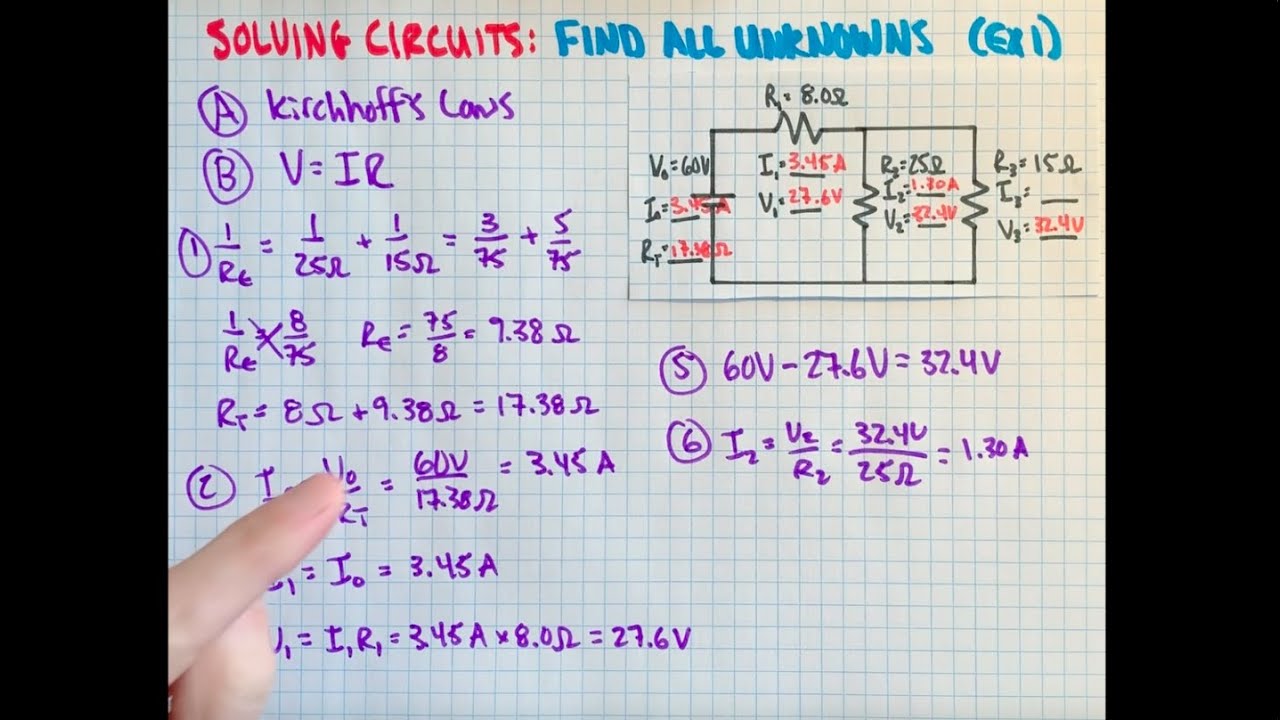 SOLVING CIRCUITS: FIND ALL UNKNOWNS (EX 1)
Ⓐ Kirchhoff's Laws
Ⓑ V = IR
① 1/R_E = 1/25Ω + 1/15Ω = 3/75 + 5/75
1/R_E = 8/75 R_E = 75/8 = 9.38 Ω
R_T = 8Ω + 9.38Ω = 17.38Ω
② I = V₀/R_T = 60V/17.38Ω = 3.45 A
I₁ = I₀ = 3.45 A
V₁ = I₁R₁ = 3.45A × 8.0Ω = 27.6V
R₁ = 8.0Ω
V₀ = 60V
I₀ = 3.45A
R_T = 17.38Ω
I₁ = 3.45A
V₁ = 27.6V
R₂ = 25Ω
I₂ = 1.30A
V₂ = 32.4V
R₃ = 15Ω
I₃ = __
V₃ = 32.4V
⑤ 60V − 27.6V = 32.4V
⑥ I₂ = V₂/R₂ = 32.4V/25Ω = 1.30A